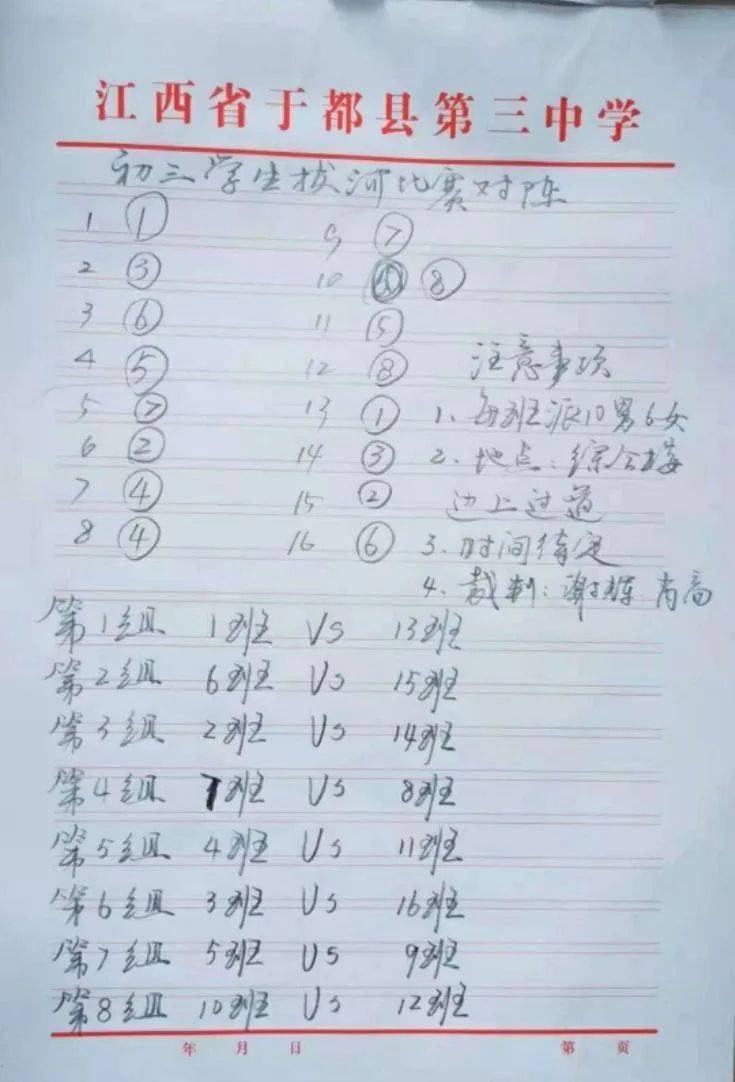 江西省于都县第三中学
初三学生拔河比赛对阵
1 ① 9 ⑦
2 ③ 10 ⑧
3 ⑥ 11 ⑤
4 ⑤ 12 ⑧ 注意事项
5 ⑦ 13 ① 1、每班派10男6女
6 ② 14 ③ 2、地点:综合楼
7 ④ 15 ② 边上过道
8 ④ 16 ⑥ 3、时间待定
4、裁判:谢辉 肖高
第1组 1班 VS 13班
第2组 6班 VS 15班
第3组 2班 VS 14班
第4组 7班 VS 8班
第5组 4班 VS 11班
第6组 3班 VS 16班
第7组 5班 VS 9班
第8组 10班 VS 12班
年 月 日 第 页